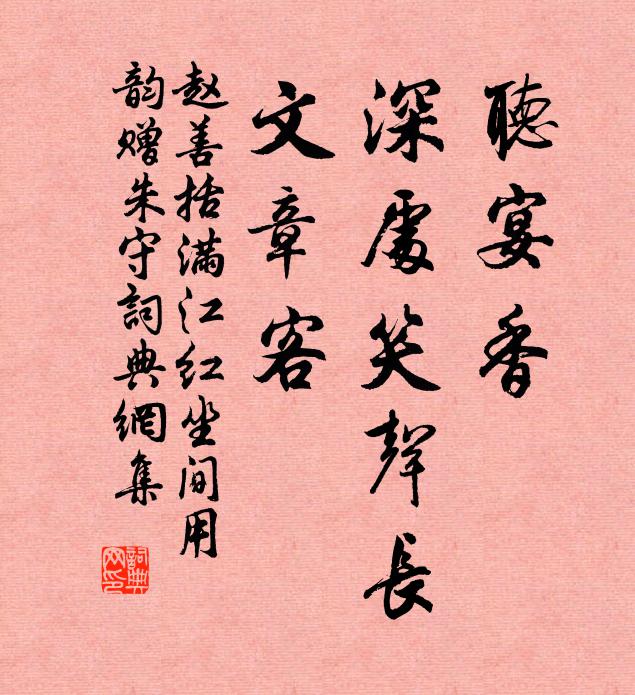 聽宴香
深處笑聲長
文章客
赵善括滿江红坐间用
韵赠朱守詞典網集
詞典网印